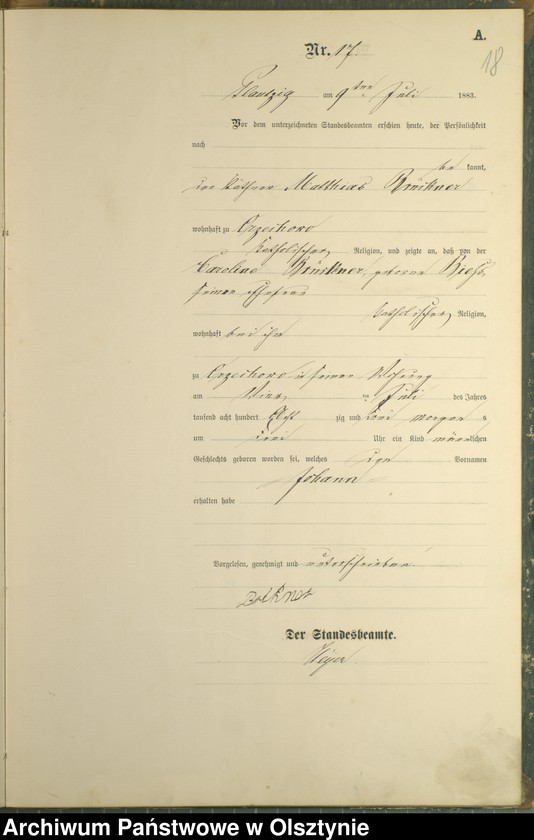 A.
18
Nr. 17.
Plautzig am 9ten Juli 1883.
Vor dem unterzeichneten Standesbeamten erschien heute, der Persönlichkeit
nach
be kannt,
der Käthner Matthias Brückner
wohnhaft zu Orzechowo
katholischer Religion, und zeigte an, daß von der
Caroline Brückner, geborne
seiner Ehefrau
katholischer Religion,
wohnhaft bei ihm
zu Orzechowo in seiner Wohnung
am Juli des Jahres
tausend acht hundert acht zig und drei morgen s
um drei Uhr ein Kind männlichen
Geschlechts geboren worden sei, welches den Vornamen
Johann
erhalten habe
Vorgelesen, genehmigt und unterschrieben.
Der Standesbeamte.
Archiwum Państwowe w Olsztynie